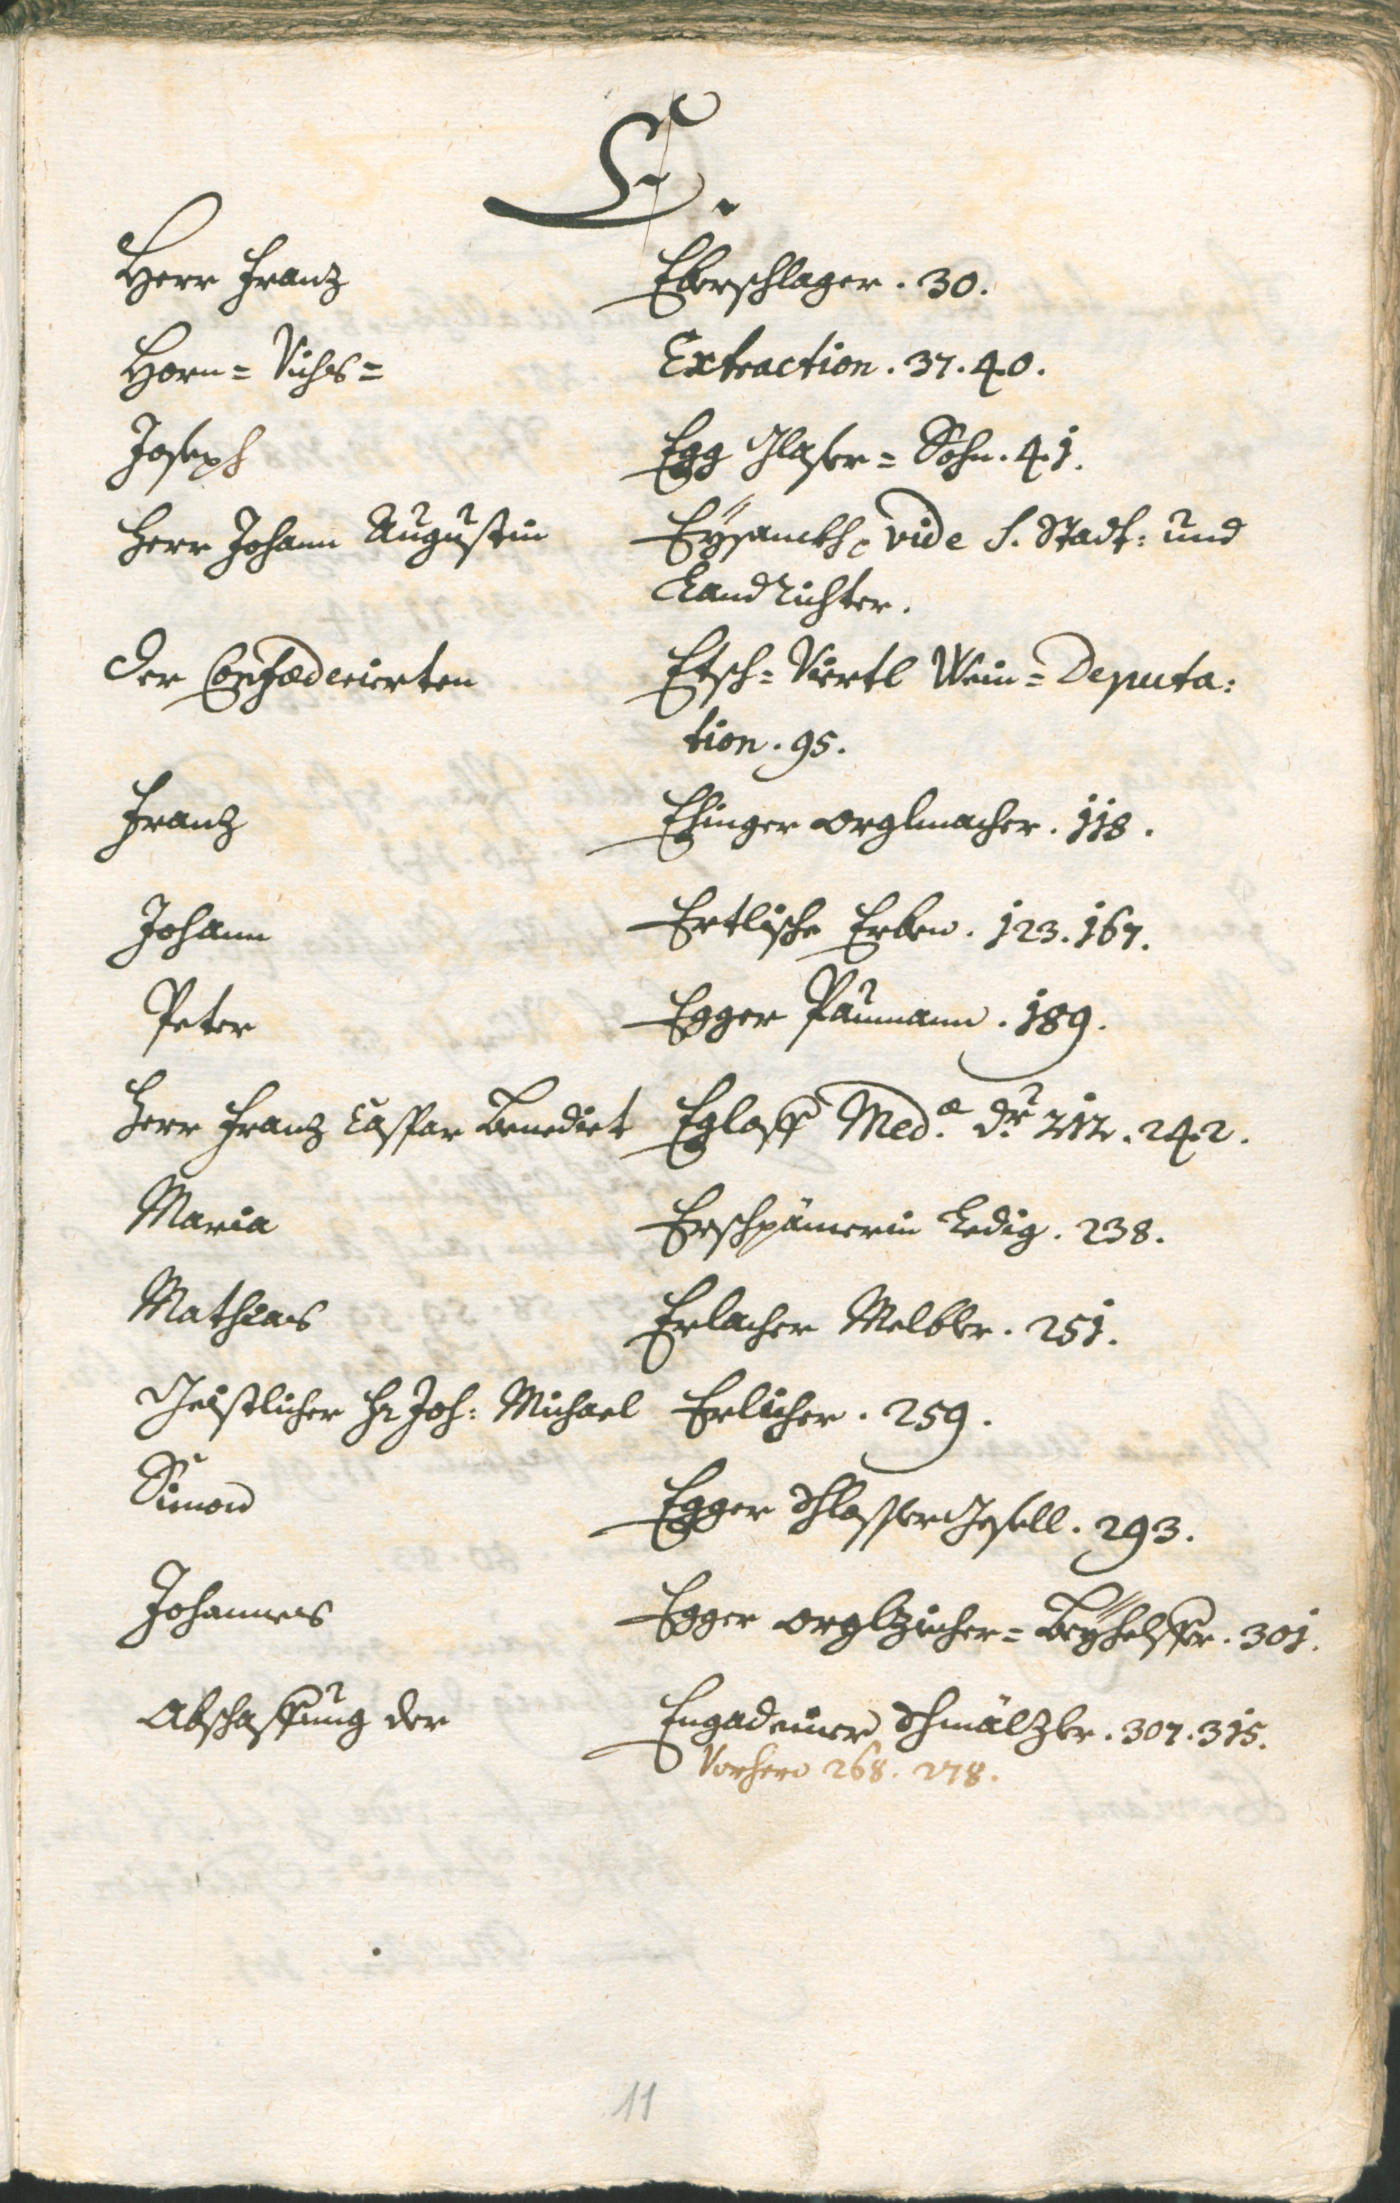 E.
Herr Franz Eberschlager . 30 .
Horn = Vichs = Extraction . 37 . 40 .
Joseph Egg Glaser = Sohn . 41 .
Herr Johann Augustin Eÿsanckh, vide S. Stadt: und
Landrichter .
Der Confœderierten Etsch = Viertl Wein = Deputa:
tion . 95 .
Franz Ehinger orglmacher . 118 .
Johann Ertlische Erben . 123 . 167 .
Peter Egger Paumann . 189 .
Herr Franz Caspar Benedict Egloff Med.æ Dr 212 . 242 .
Maria Erschpämerin Ledig . 238 .
Mathias Erlacher Melbler . 251 .
Geistlicher Hr Joh: Michael Erlicher . 259 .
Simon Egger Schlosser Gesell . 293 .
Johannes Egger orglziecher = Beÿhelffer . 301 .
Abschaffung der Engadeiner Schmälzler . 307 . 315 .
Vorhero 268 . 278 .
11